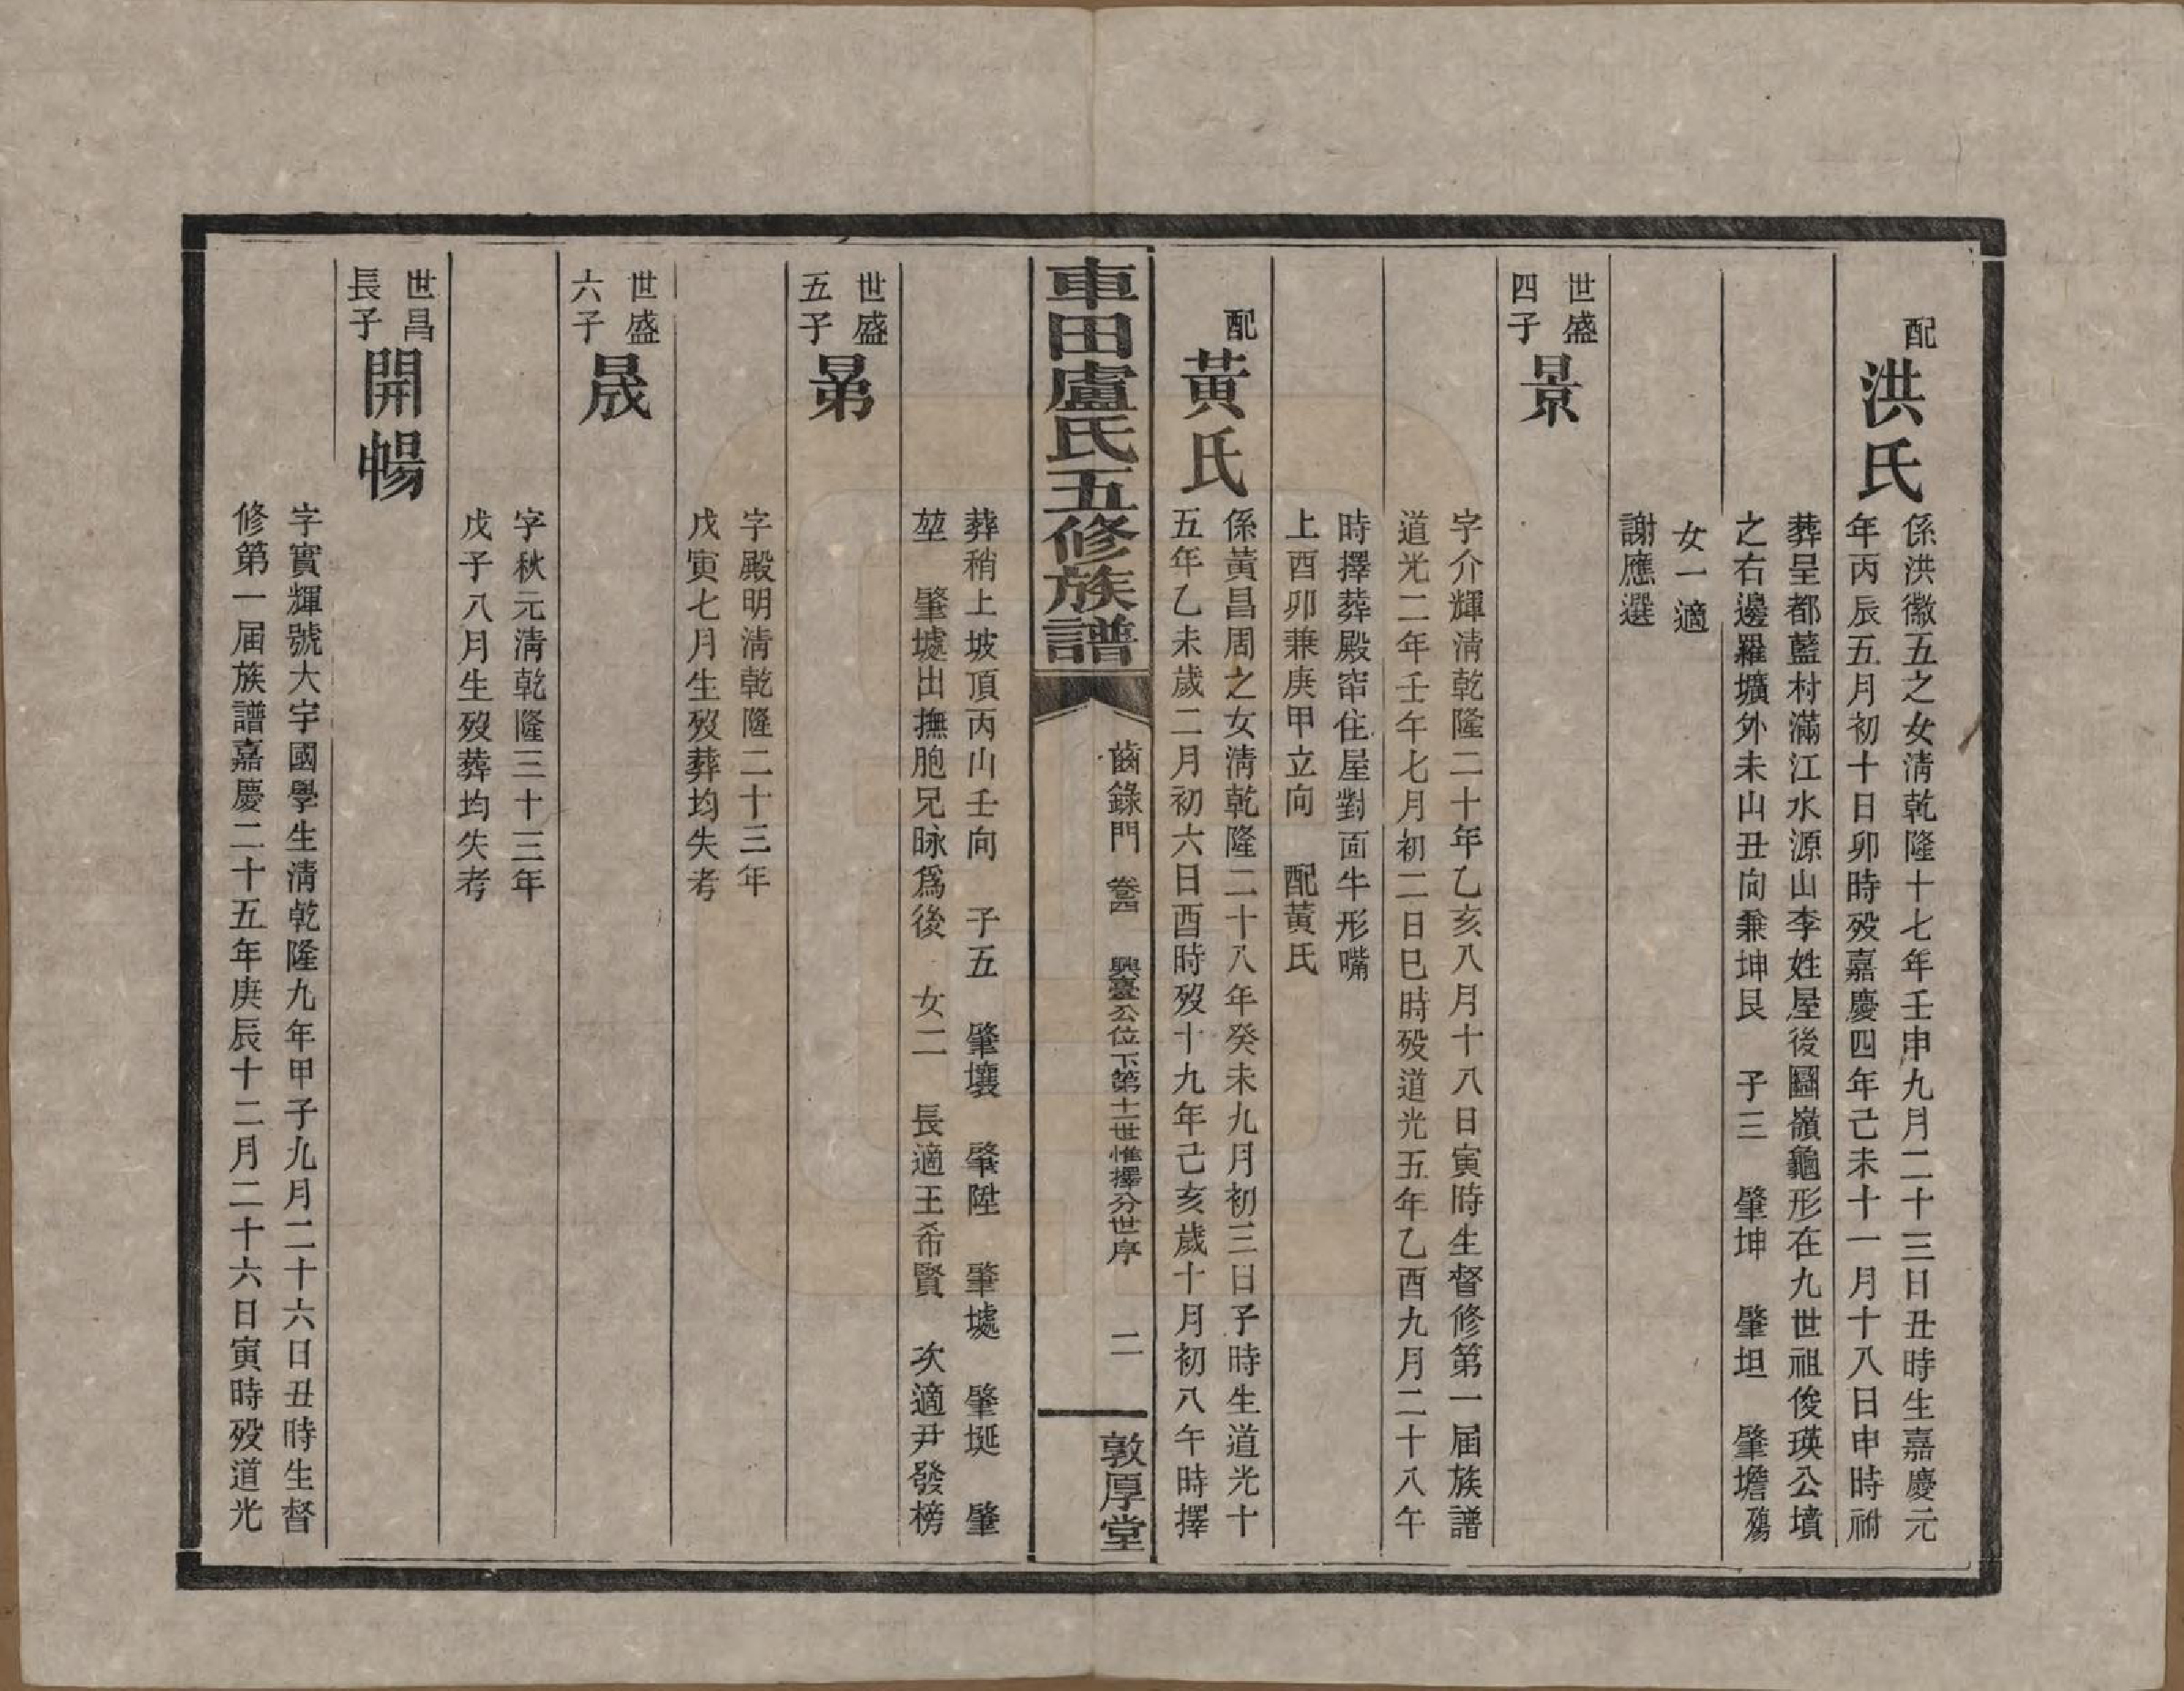 配
洪氏
係洪徽五之女清乾隆十七年壬申九月二十三日丑時生嘉慶元
年丙辰五月初十日卯時殁嘉慶四年己未十一月十八日申時祔
葬呈都藍村滿江水源山李姓屋後圖嶺龜形在九世祖俊瑛公墳
之右邊羅壙外未山丑向兼坤艮　子三　肇坤　肇坦　肇墖殤
女一適
謝應選
世盛
四子
景
字介輝清乾隆二十年乙亥八月十八日寅時生督修第一届族譜
道光二年壬午七月初二日巳時殁道光五年乙酉九月二十八午
時擇葬殿帘住屋對面牛形嘴
上酉卯兼庚甲立向　配黃氏
配
黃氏
係黃昌周之女清乾隆二十八年癸未九月初三日子時生道光十
五年乙未歲二月初六日酉時殁十九年己亥歲十月初八午時擇
車田盧氏五修族譜
齒錄門　卷四　興臺公位下第十一世惟擇分世序　二
敦厚堂
葬稍上坡頂丙山壬向　子五　肇壤　肇陞　肇墟　肇埏　肇
堃　肇墟出撫胞兄昹爲後　女二　長適王希賢　次適尹發榜
世盛
五子
字殿明清乾隆二十三年
戊寅七月生殁葬均失考
世盛
六子
晟
字秋元清乾隆三十三年
戊子八月生殁葬均失考
世昌
長子
開暢
字實輝號大宇國學生清乾隆九年甲子九月二十六日丑時生督
修第一届族譜嘉慶二十五年庚辰十二月二十六日寅時殁道光